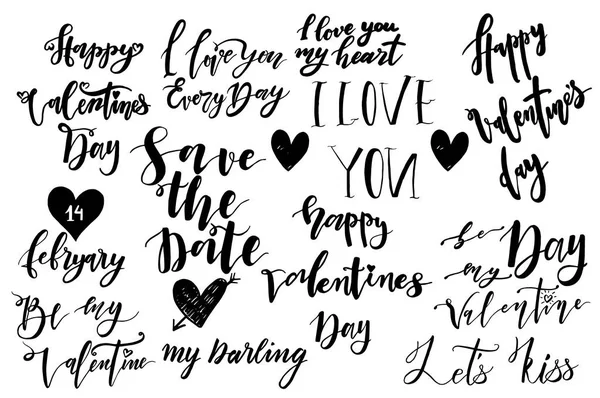 Happy
Valentines
Day
I love you
Every Day
I love you
my heart
I LOVE
YOU
Happy
Valentine's
day
Save
the
Date
14
febryary
happy
Valentines
Day
be
my
Day
Valentine
Be my
Valentine
my Darling
Let's kiss